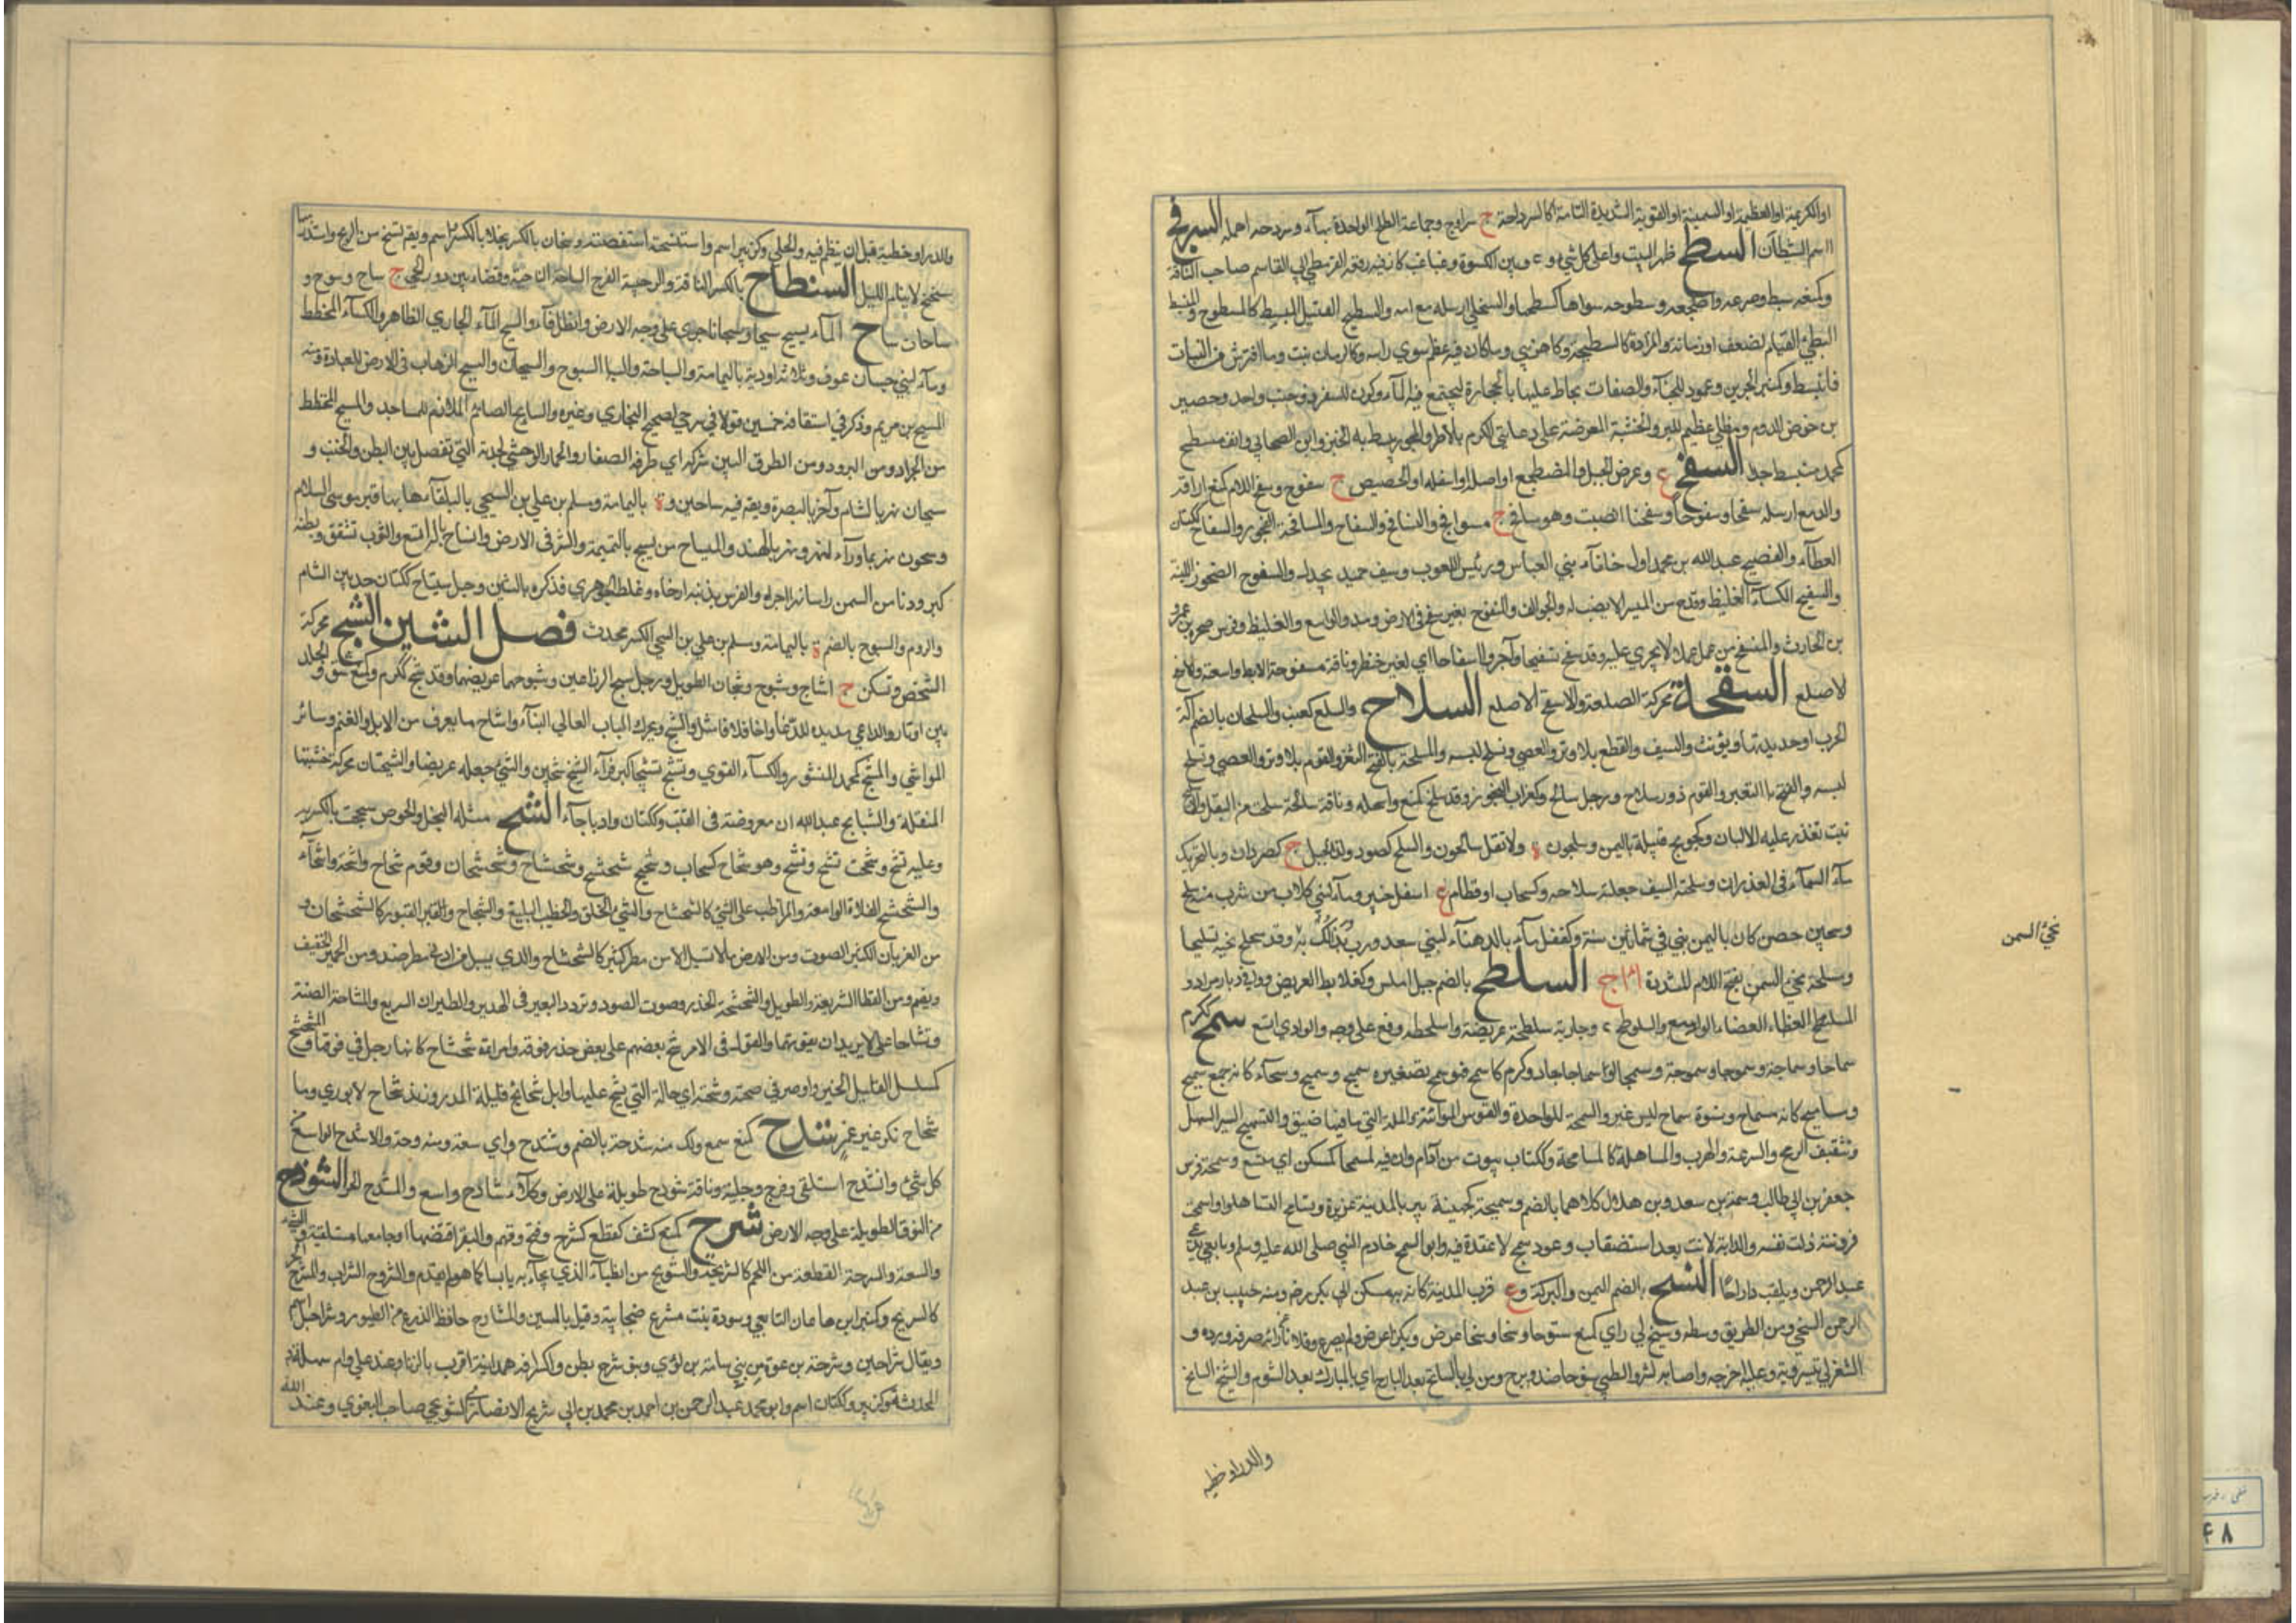 او الكريمة او العظيمة او السمينة او القوية الشديدة التامة كالسرداحة ج سرادح وجماعة الطلح الواحدة بهاء وسردحه اهمله السرفح
اسم الشيطان السطح ظهر البيت واعلى كل شي و ع وبين الكسوة وغباغب كان فيه وقعة القرمطي ابي القاسم صاحب الناقة
وكمنعه بسطه وصرعه واضجعه وسطوحه سواها كسطحها والسخل ارسله مع امه والسطيح القتيل المنبسط كالمسطوح والمنبسط
البطي القيام لضعف او زمانة والمزادة كالسطيحة وكاهن بني وما كان فيه عظم سوى راسه وكالرمان نبت وما افترش من النبات
فانبسط وكمنبر الجرين وعمود للخباء والصفات يحاط عليها بالحجارة ليجتمع فيه الماء وكوز للسفر ذو جنب واحد وحصير
من خوص الدوم ومقلى عظيم للبر والخشبة المعروضة على دعامتي الكرم بالاطر والمحور يبسط به الخبز وابن الصحابي وانف مسطح
كمحمد منبسط جدا السفح ع وعرض الجبل المضطجع او اصله او اسفله او الحضيض ج سفوح وسفح الدم كمنع اراقه
والدمع ارسله سفحا وسفوحا وسفحنا انصبت وهو سافح ج سوافح والتسافح والسفاح والمسافحة الفجور والسفاح ككتان
المعطاء والفصيح وعبد الله بن محمد اول خلفاء بني العباس ورئيس للعرب وسيف حميد بن بحدل والسفوح الصخور اللينة
والسفيح الكساء الغليظ وقدح من الميسر لا نصيب له والجوالق والمسفوح بعير سفح في الارض ومد والواسع والغليظ وفرس صخر بن عمرو
بن الحارث والمسفح من عمل عملا لا يجدي عليه وقد سفح تسفيحا واجروا سفاحا اي لغير خطر وناقة مسفوحة الابط واسعة والاسفح
الاصلع السقحة محركة الصلعة والاسقح الاصلع السلاح والسلح كعنب والسلحان بالضم آلة
الحرب او حديدتها ويؤنث والسيف والقوس بلا وتر والعصى وتسلح لبسه والمسلحة بالفتح الثغر والقوم بلا وتر والعصى وتسلح
لبسه والمسلحة الثغر والقوم ذوو سلاح ورجل سالح وكغراب النجو وقد سلح كمنع واسلحه وناقة سالحة سلحت من البقل والاسليح
نبت تغزر عليه الالبان وكجويح قبيلة باليمن وسيلحون ة ولا تقل سالحون والسلح كصرد ولد الحجل ج كصردان وبالتحريك
ماء السماء في الغدران وسلحته السيف جعلته سلاحه وكسحاب او قطام ع اسفل خيبر وماء لبني كلاب من شرب منه سلح
وسلحين حصن كان باليمن بني في ثمانين سنة وكقفل ماء بالدهناء لبني سعد ورب يدلك به وقد سلح نحيه تسليحا
ومسلحة نحي السمن بفتح اللام المشددة السلطح بالضم جبل املس وكعلابط العريض وواد في ديار مراد و
المسلنطح الفضاء الواسع والسلوطح ع وجارية سلطحة عريضة واسلنطح وقع على وجهه والوادي اتسع سمح ككرم
سماحا وسماحة وسموحا وسموحة وسمحا وسماحا جاد وكرم كاسمح فهو سمح تصغيره سميح وسميح وسمحاء كانه جمع سميح
ومساميح كانه مسماح ونسوة سماح ليس غير والسمحة للواحدة والقوس المواتية والملة التي ما فيها ضيق والتسميح السير السهل
وتثقيف الرمح والسرعة والهرب والمساهلة كالمسامحة وككتاب بيوت من ادم وان فيه لمسمحا كمسكن اي متسع وسمحة فرس
جعفر بن ابي طالب وسمحة بن سعد وبن هلال كلاهما بالضم وسميحة كجهينة بير بالمدينة غزيرة وتسامحوا تساهلوا واسمحت
قرونته ذلت نفسه والدابة لانت بعد استصعاب وعود سمح لا عقدة فيه وابو السمح خادم النبي صلى الله عليه وسلم وتابعي
عبد الرحمن ويلقب دراجا السنح بالضم اليمن والبركة و ع قرب المدينة كان به مسكن ابي بكر رض ومنه خبيب بن عبد
الرحمن السنحي ومن الطريق وسطه وسنح لي راي كمنع سنوحا وسنحا وسنحا عرض وبكذا عرض ولم يصرح وفلانا عن رايه صرفه ورده و
الشعر لي تيسر وبه وعليه احرجه واصابه بشر والظبي سنوحا ضد برح ومن لي بالسانح بعد البارح اي بالمبارك بعد الشؤم والسنيح السانح
والدر او خطيه
نحي السمن
والدر او خيطه قبل ان ينظم فيه والحلي وكزبير اسم واستسنحته استفحصته وسنحان بالكسر مخلاف بالكسر اسم ويقال تسنح من الريح واستذر
سنحنح لا ينام الليل السنطاح بالكسر الناقة الرحيبة الفرج الساحة الناحية وفضاء بين دور الحي ج ساح وسوح و
ساحات ساح الماء يسيح سيحا وسيحانا جرى على وجه الارض والظل فاء والسيح الماء الجاري الظاهر والكساء المخطط
وماء لبني حسان بن عوف وثلاثة اودية باليمامة والسياحة والسيوح والسيحان والسيح الذهاب في الارض للعبادة ومنه
المسيح بن مريم وذكر في اشتقاقه خمسين قولا في شرحي لصحيح البخاري وغيره والسايح الصائم الملازم للمساجد والمسيح المخطط
من الجراد ومن البرود ومن الطرق المبين شركه اي طرقه الصغار والحمار الوحشي لجدته التي تفصل بين البطن والجنب و
سيحان نهر بالشام وآخر بالبصرة ويقال فيه ساحين و ة باليمامة ومسلم بن علي بن السيحي بالبلقاء بها قبر موسى عليه السلام
وسيحون نهر بما وراء النهر ونهر بالهند والمسياح من يسيح بالنميمة والشر في الارض وانساح باله اتسع والثوب تشقق وبطنه
كبر ودنا من السمن راسا نهر اجراه والفرس بذنبه ارخاه وغلط الجوهري فذكره بالشين وجبل سياح ككتان حد بين الشام
والروم والسيوح بالضم ة باليمامة ومسلم بن علي بن السيحي بالكسر محدث فصل الشين الشبح محركة
الشخص وتسكن ج اشباح وشبوح وشبحان الطويل ورجل شبح الذراعين ومشبوحهما عريضهما وقد شبح ككرم وكمنع شق والجلد
بين اوتاد والداعي مد يديه للدعاء وانا فلانا مثل والشبح ويحرك الباب العالي البناء واشباح ما يعرف من الابل والغنم وسائر
المواشي والمشبح كمحمد المقشور والكساء القوي وشبح تشبيحا كبر فراى الشبح شبحين والشي جعله عريضا والشبحتان محركة خشبتا
المنقلة والشبائح عيدان معروضة في القتب وككتان واد باجاء الشح مثلثة البخل والحرص شححت بالكسر به
وعليه تشح وشححت تشح وتشح وهو شحاح كسحاب وشحيح وشحشح وشحشاح وشحشحان وقوم شحاح واشحة واشحاء
والشحشح الفلاة الواسعة والمواظب على الشي كالشحشاح والسيئ الخلق والخطيب البليغ والشجاع والغيور كالشحشحان و
من الغربان الكثير الصوت ومن الارض ما لا تسيل الا من مطر كثير كالشحشاح والذي يسيل من ادنى مطر ضد ومن الحمير الخفيف
ويضم ومن القطا السريعة والطويل والشحشحة الحذر وصوت الصرد وتردد البعير في الهدير والطيران السريع والمشاحة الضنة
وتشاحا على الامر لا يريدان يفوتهما والقوم في الامر شح بعضهم على بعض حذر فوته وامراة شحشاح كانها رجل في قوتها والمشحشح
كمسلسل القليل الخير واوصى في صحته وشحته اي حالة التي يشح عليها وابل شحائح قليلة الدر وزند شحاح لا يوري وماء
شحاح نكر غير غمر شدح كمنع سمن ولك منه شدحة بالضم ومشتدح اي سعة ومندوحة والاشدح الواسع من
كل شي وانشدح استلقى وفرج رجليه وناقة شودح طويلة على الارض وكلاء شادح واسع والمشدح الحر الشوذح
من النوق الطويلة على وجه الارض شرح كمنع كشف كقطع كشرح وفتح وفهم والبكر اقتضها او جامعها مستلقية والشيء
والسعة والشرحة القطعة من اللحم كالشريحة والشريح من الظباء الذي يجاء به يابسا كما هو لم يقدد والمشروح السراب والمشرح
كالشريح وكمنبر ابن هاعان التابعي وسودة بنت مشرح صحابية وقيل بالسين والشارح حافظ الزرع من الطيور وشراحيل اسم
ويقال شراحين وشرحة بن عوة من بني سامة بن لؤي وبنو شرح بطن وكسراقة همدانية اقرت بالزنا عند علي وام سهلة
المحدثة وكزبير وككتان اسم وابو محمد عبد الرحمن بن احمد بن محمد بن ابي شريح الانصاري الشريحي صاحب البغوي وعبد الله